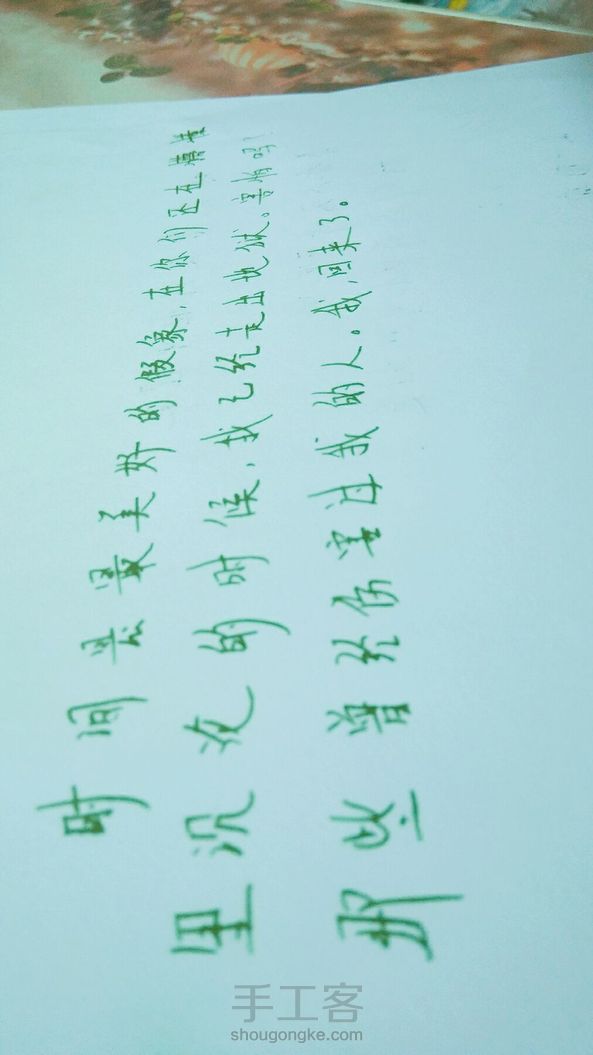 时间是最美好的假象，在你们还在
里沉的时候，我已经走出地狱。害怕吗！
那些曾经伤害过我的人。我，回来了。
手工客
shougongke.com